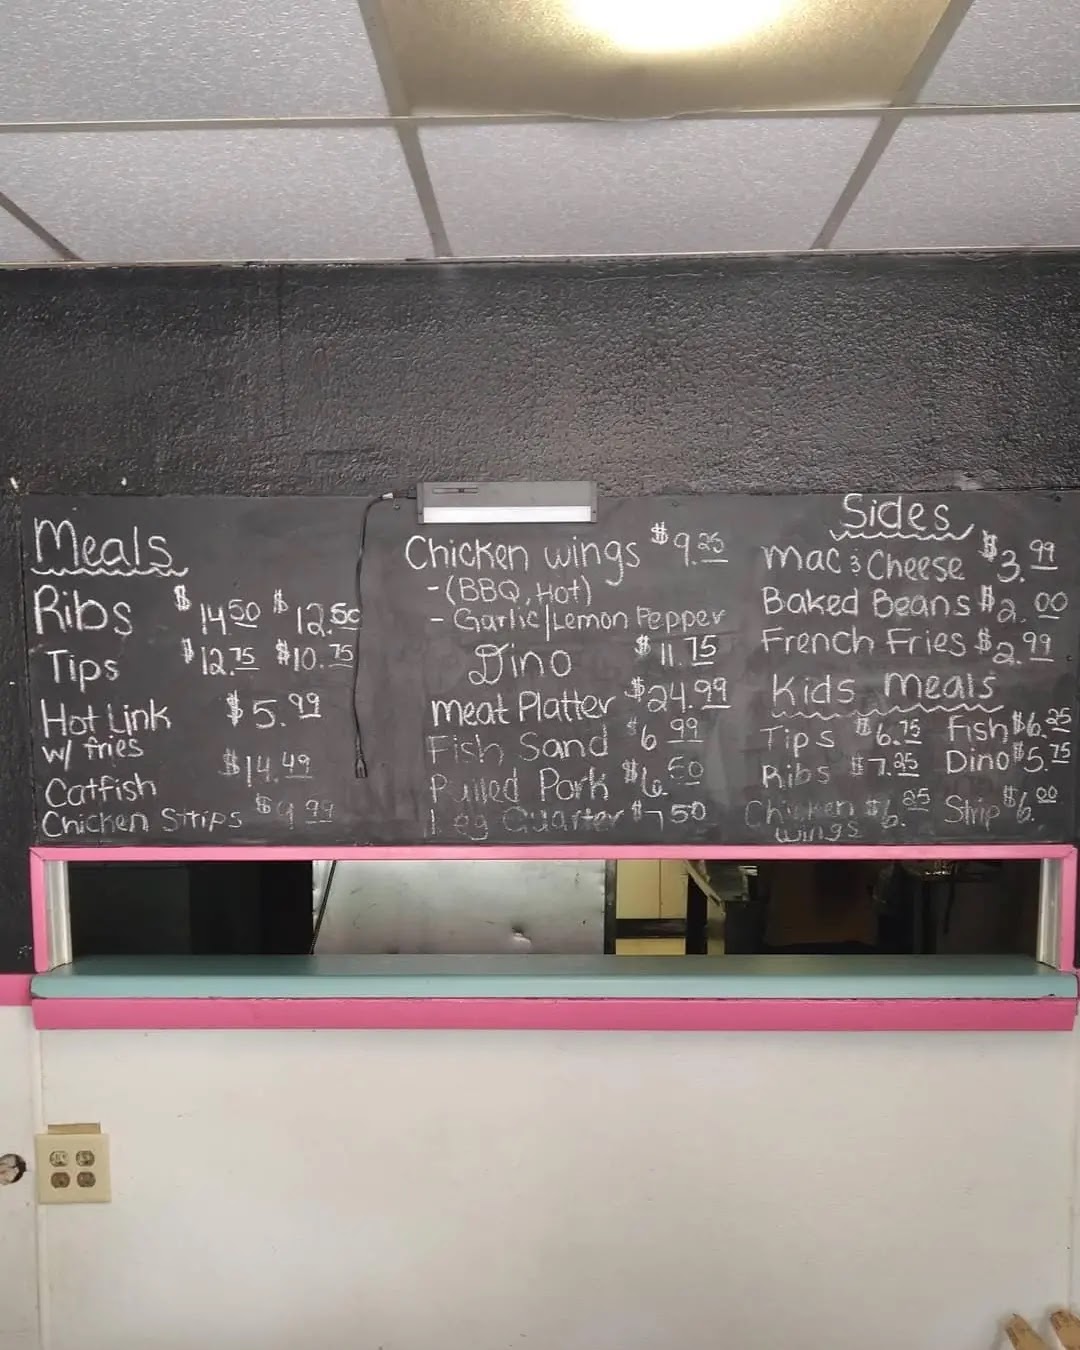 Meals
Ribs $14.50 $12.50
Tips $12.75 $10.75
Hot Link $5.99
w/ fries
Catfish $14.49
Chicken Strips $9.99
Chicken wings $9.25
-(BBQ, Hot)
- Garlic/Lemon Pepper
Dino $11.75
Meat Platter $24.99
Fish Sand $6.99
Pulled Pork $6.50
Leg Quarter $7.50
Sides
Mac & Cheese $3.99
Baked Beans $2.00
French Fries $2.99
Kids Meals
Tips $6.75 Fish $6.25
Ribs $7.25 Dino $5.75
Chicken $6.25 Strip $6.00
wings